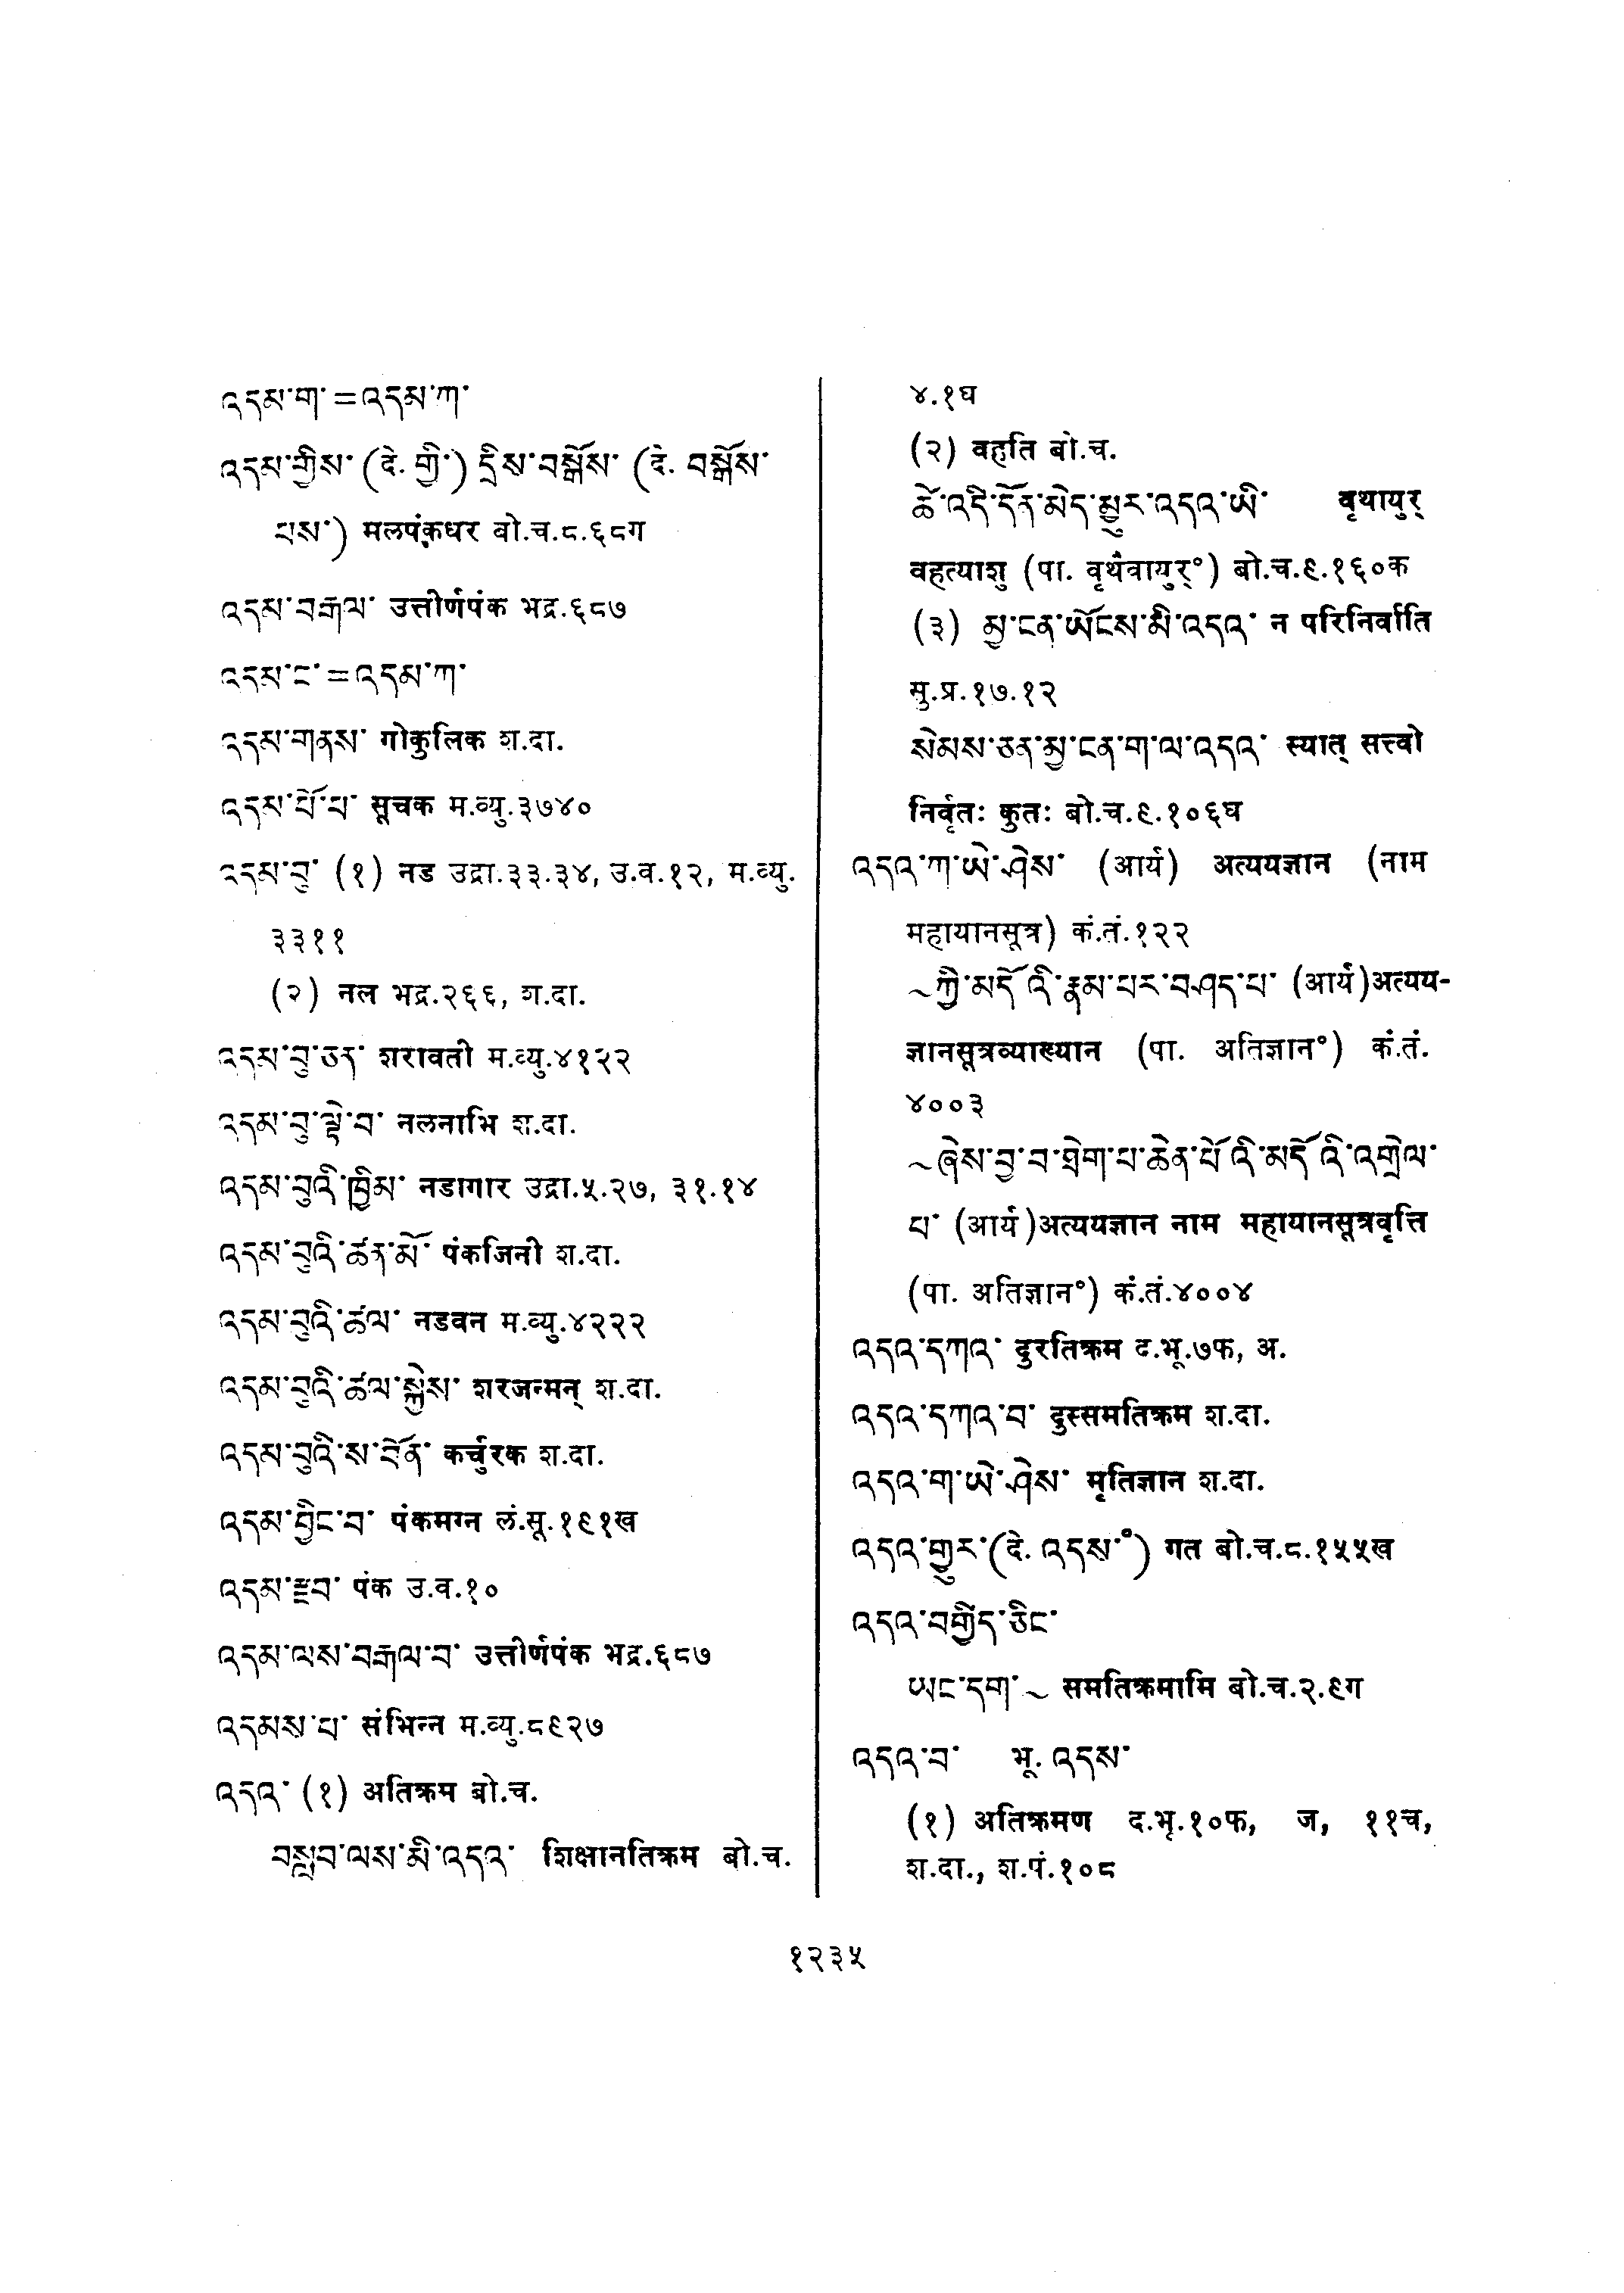 འདམ་ག་ = འདམ་ཀ་
འདམ་གྱིས་ (དེ. གྱི་) དྲིས་བསྒོས་ (དེ. བསྒོས་
པས་) मलपंकधर बो.च.८.६८ग
འདམ་བརྒལ་ उत्तीर्णपंक भद्र.६८७
འདམ་ང་ = འདམ་ཀ་
འདམ་གནས་ गोकुलिक श.दा.
འདམ་པོ་པ་ सूचक म.व्यु.३७४०
འདམ་བུ་ (१) नड उद्रा.३३.३४, उ.व.१२, म.व्यु.
३३११
(२) नल भद्र.२६६, श.दा.
འདམ་བུ་ཅན་ शरावती म.व्यु.४१२२
འདམ་བུ་ལྟེ་བ་ नलनाभि श.दा.
འདམ་བུའི་ཁྱིམ་ नडागार उद्रा.५.२७, ३१.१४
འདམ་བུའི་ཚན་མོ་ पंकजिनी श.दा.
འདམ་བུའི་ཚལ་ नडवन म.व्यु.४२२२
འདམ་བུའི་ཚལ་སྐྱེས་ शरजन्मन् श.दा.
འདམ་བུའི་ས་བོན་ कर्चुरक श.दा.
འདམ་བྱིང་བ་ पंकमग्न लं.सू.१९१ख
འདམ་རྫབ་ पंक उ.व.१०
འདམ་ལས་བརྒལ་བ་ उत्तीर्णपंक भद्र.६८७
འདམས་པ་ संभिन्न म.व्यु.८९२७
འདའ་ (१) अतिक्रम बो.च.
བསླབ་ལས་མི་འདའ་ शिक्षानतिक्रम बो.च.
४.१घ
(२) वहति बो.च.
ཚེ་འདི་དོན་མེད་མྱུར་འདའ་ཡི་ वृथायुर्
वहत्याशु (पा. वृथैवायुर्°) बो.च.९.१६०क
(३) མྱ་ངན་ཡོངས་མི་འདའ་ न परिनिर्वाति
सु.प्र.१७.१२
སེམས་ཅན་མྱ་ངན་ག་ལ་འདའ་ स्यात् सत्त्वो
निर्वृतः कुतः बो.च.९.१०६घ
འདའ་ཀ་ཡེ་ཤེས་ (आर्य) अत्ययज्ञान (नाम
महायानसूत्र) कं.तं.१२२
~ཀྱི་མདོའི་རྣམ་པར་བཤད་པ་ (आर्य)अत्यय-
ज्ञानसूत्रव्याख्यान (पा. अतिज्ञान°) कं.तं.
४००३
~ཞེས་བྱ་བ་ཐེག་པ་ཆེན་པོའི་མདོའི་འགྲེལ་
པ་ (आर्य)अत्ययज्ञान नाम महायानसूत्रवृत्ति
(पा. अतिज्ञान°) कं.तं.४००४
འདའ་དཀའ་ दुरतिक्रम द.भू.७फ, अ.
འདའ་དཀའ་བ་ दुस्समतिक्रम श.दा.
འདའ་ག་ཡེ་ཤེས་ मृतिज्ञान श.दा.
འདའ་གྱུར་(དེ. འདས་°) गत बो.च.८.१५५ख
འདའ་བགྱིད་ཅིང་
ཡང་དག་~ समतिक्रमामि बो.च.२.९ग
འདའ་བ་ भू. འདས་
(१) अतिक्रमण द.भू.१०फ, ज, ११च,
श.दा., श.पं.१०८
१२३५